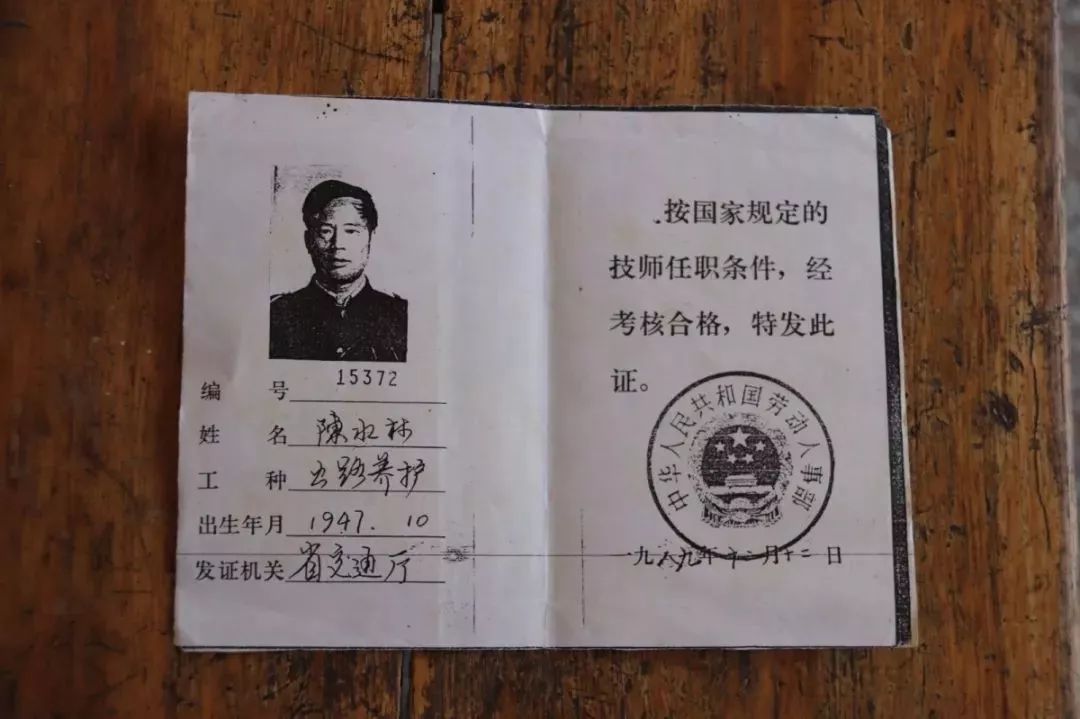 编 号 15372
姓 名 陳水林
工 种 公路养护
出生年月 1947. 10
发证机关 省交通厅
按国家规定的
技师任职条件，经
考核合格，特发此
证。
中华人民共和国劳动人事部
一九八九年十二月十二日